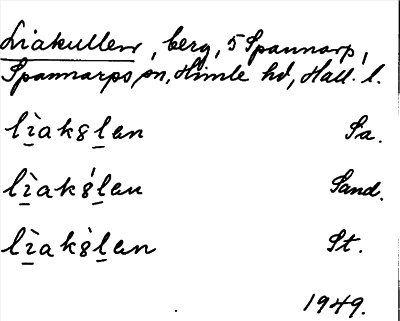 Liakullen, berg, 5 Spannarp,
Spannarps sn, Himle hd, Hall. l.
lìaksl̲an Sa.
lìaks̍l̲an Sand.
lìaks̀l̲an St.
1949.